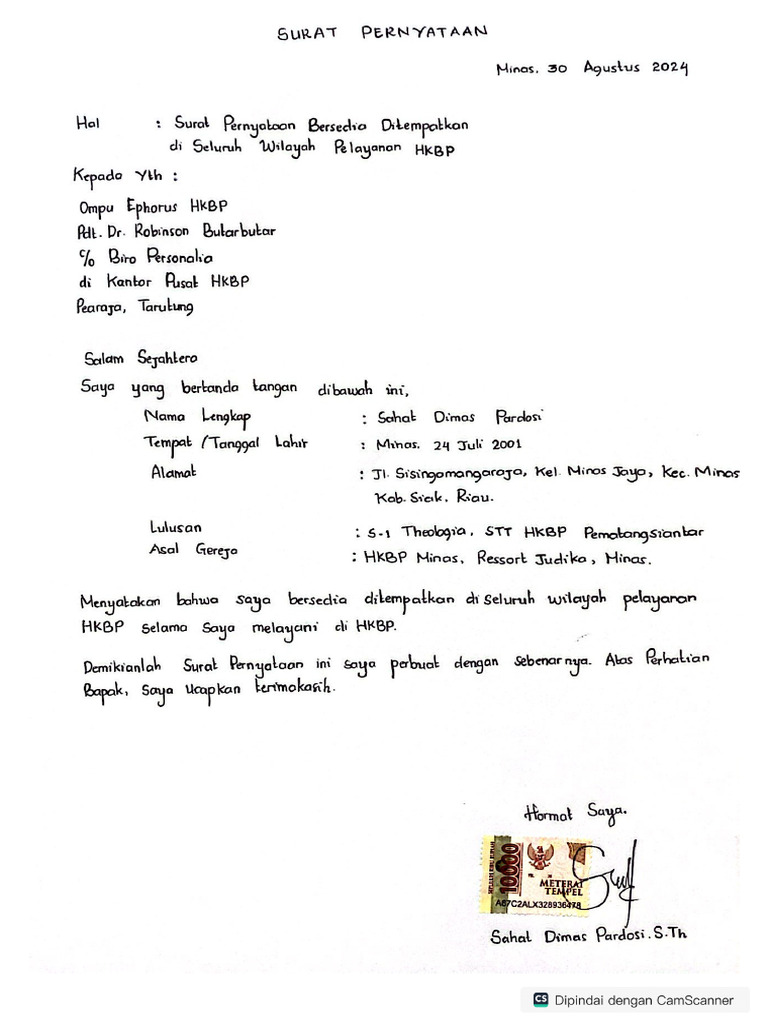 SURAT PERNYATAAN
Minas, 30 Agustus 2024
Hal : Surat Pernyataan Bersedia Ditempatkan
di Seluruh Wilayah Pelayanan HKBP
Kepada Yth :
Ompu Ephorus HKBP
Pdt. Dr. Robinson Butarbutar
c/o Biro Personalia
di Kantor Pusat HKBP
Pearaja, Tarutung
Salam Sejahtera
Saya yang bertanda tangan dibawah ini,
Nama Lengkap : Sahat Dimas Pardosi
Tempat /Tanggal Lahir : Minas. 24 Juli 2001
Alamat : Jl. Sisingamangaraja, Kel. Minas Jaya, Kec. Minas
Kab. Siak, Riau.
Lulusan : S-1 Theologia, STT HKBP Pematangsiantar
Asal Gereja : HKBP Minas, Ressort Judika, Minas.
Menyatakan bahwa saya bersedia ditempatkan di seluruh wilayah pelayanan
HKBP selama saya melayani di HKBP.
Demikianlah Surat Pernyataan ini saya perbuat dengan sebenarnya. Atas Perhatian
Bapak, saya ucapkan terimakasih.
Hormat Saya.
10000
METERAI
TEMPEL
A87C2ALX328936478
Sahat Dimas Pardosi. S.Th
CS Dipindai dengan CamScanner